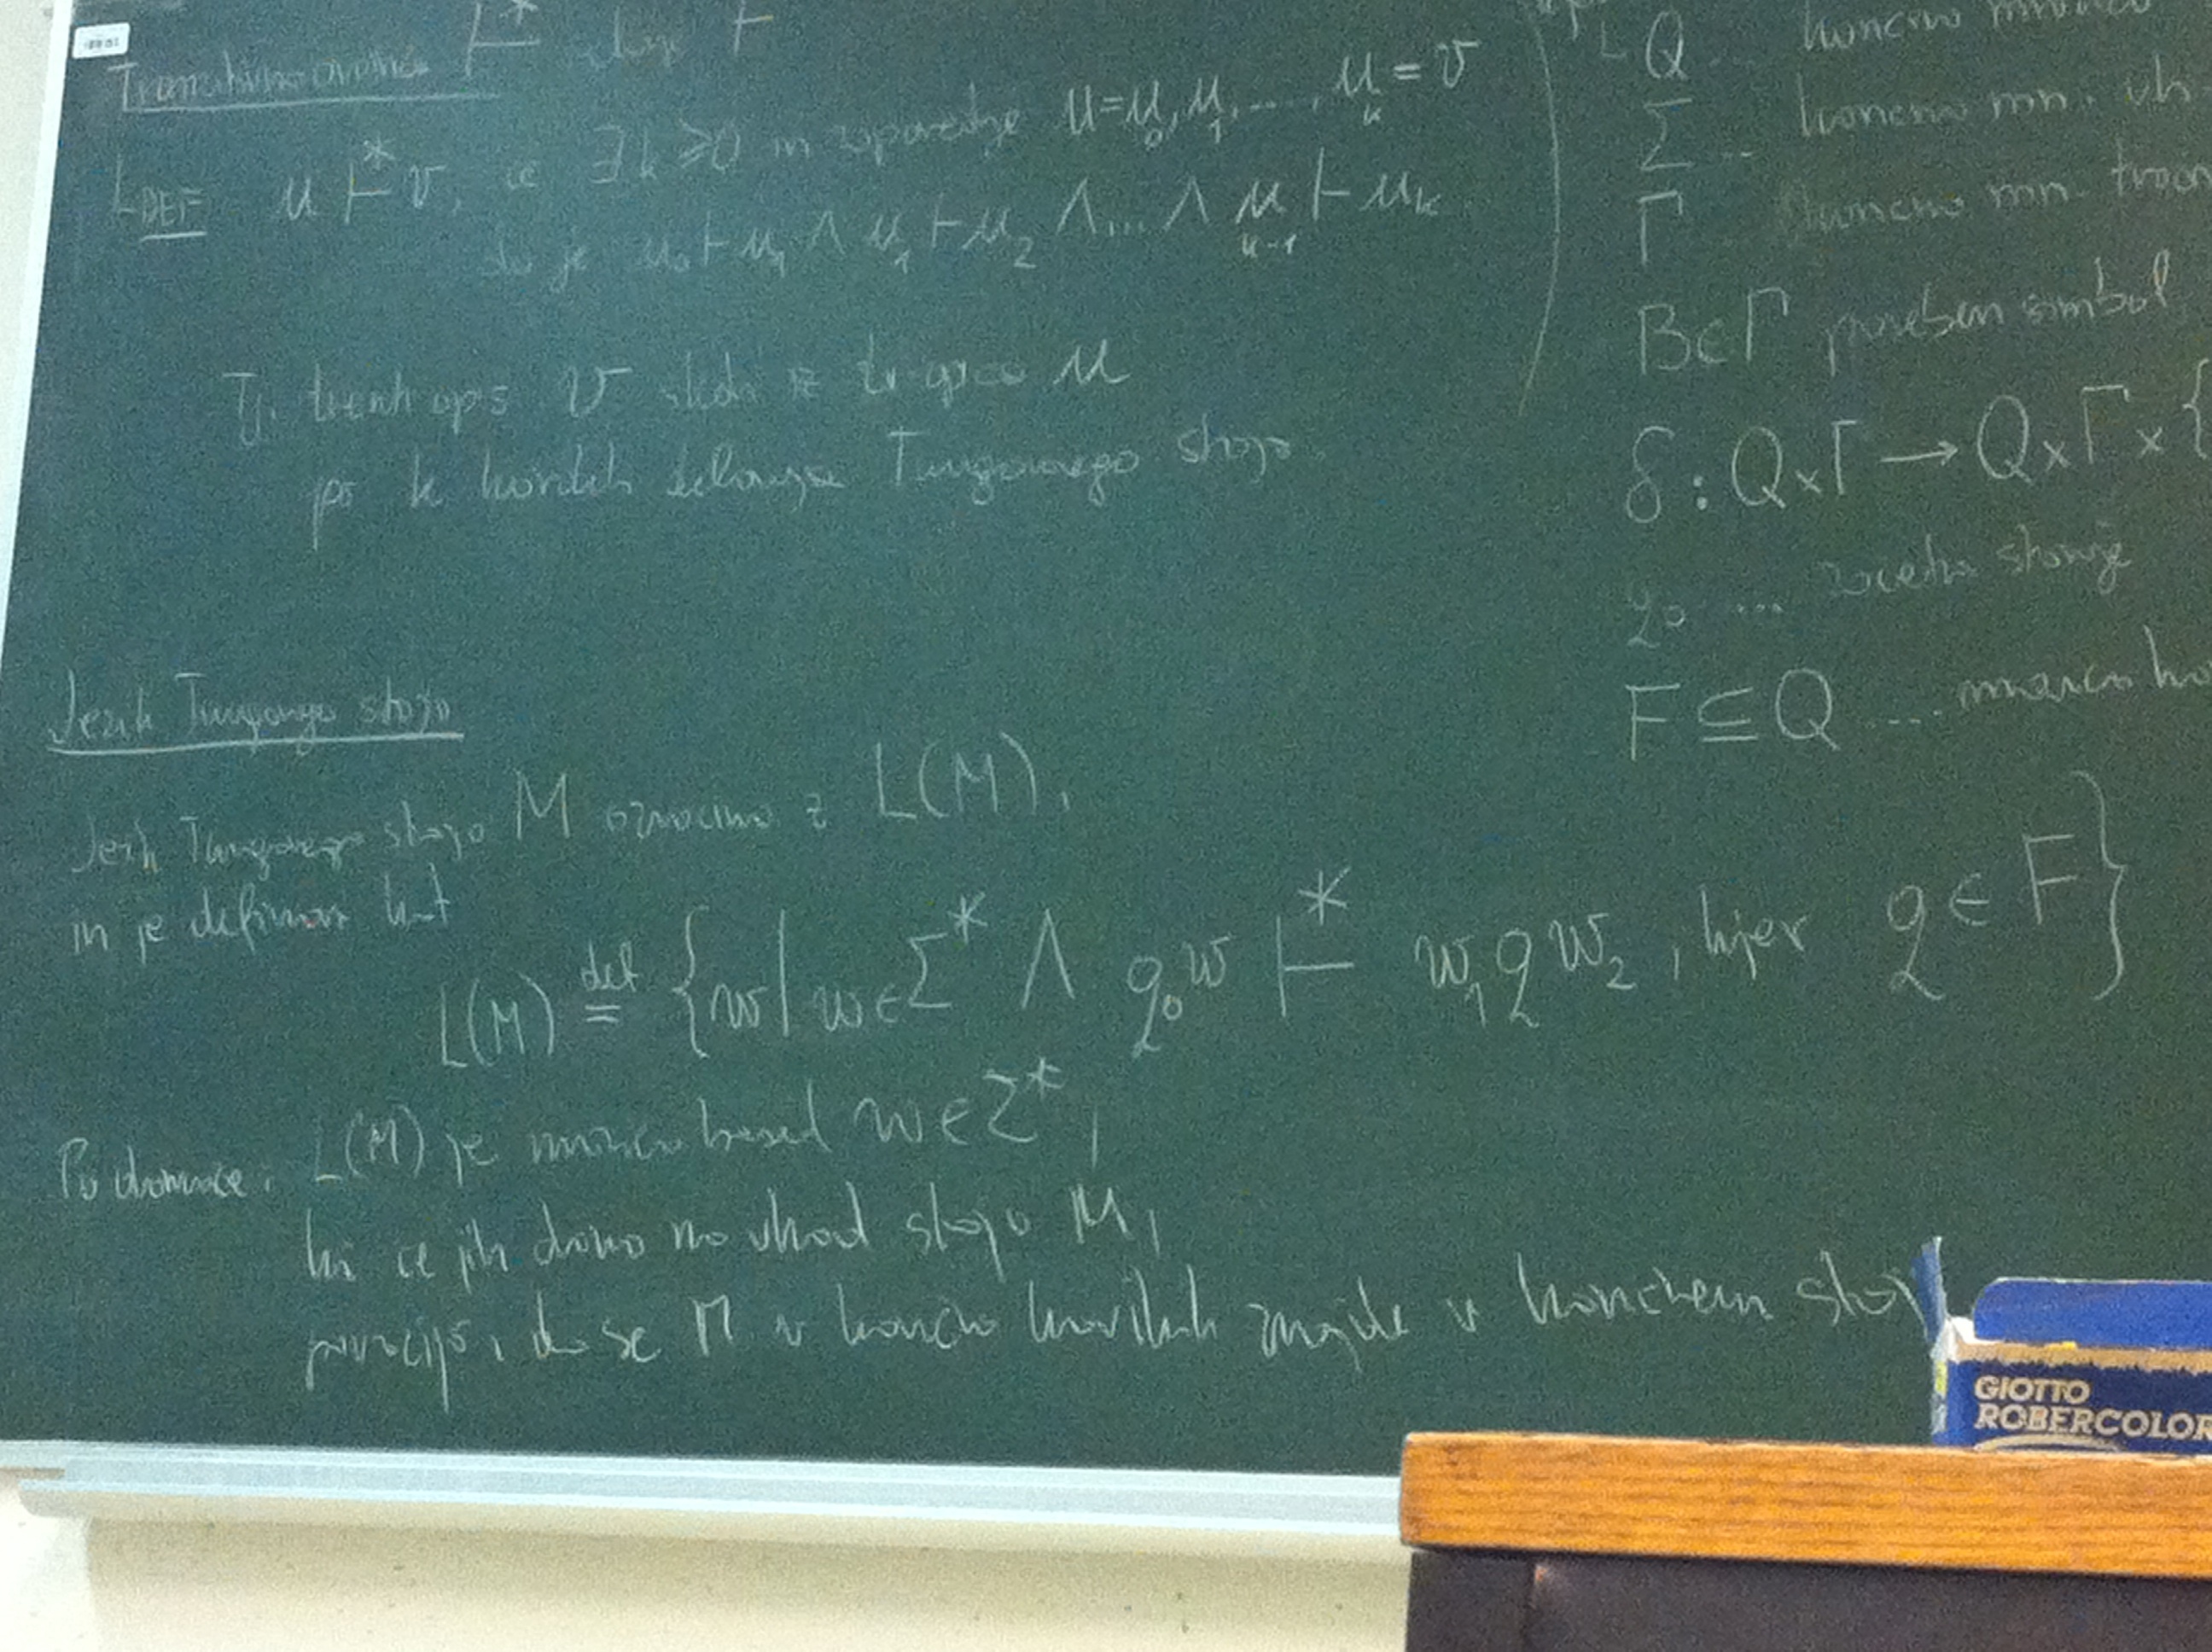 Tranzitivna ovojnica ⊢*  ⊢
DEF u ⊢* v, če ∃k≥0 in zaporedje u=u₀,u₁,...,u_k=v
da je u₀⊢u₁ ∧ u₁⊢u₂ ∧...∧ u_{k-1}⊢u_k
Tj. trenh opis v sledi iz trenh u
po k korakih delovanja Turingovega stroja.
Jezik Turingovega stroja
Jezik Turingovega stroja M označimo z L(M),
in je definiran kot
L(M) def= {w | w∈Σ* ∧ q₀w ⊢* w₁qw₂, kjer q∈F}
Po domače: L(M) je množica besed w∈Σ*,
ki če jih damo na vhod stroja M,
povzročijo, da se M v končno korakih znajde v končnem
Q ... končna množica
Σ ... končna mn. vh
Γ ... končna mn. tračn
B∈Γ prazen simbol
δ: Q×Γ → Q×Γ×{
q₀ ... začetno stanje
F⊆Q .... množica ko
GIOTTO
ROBERCOLOR